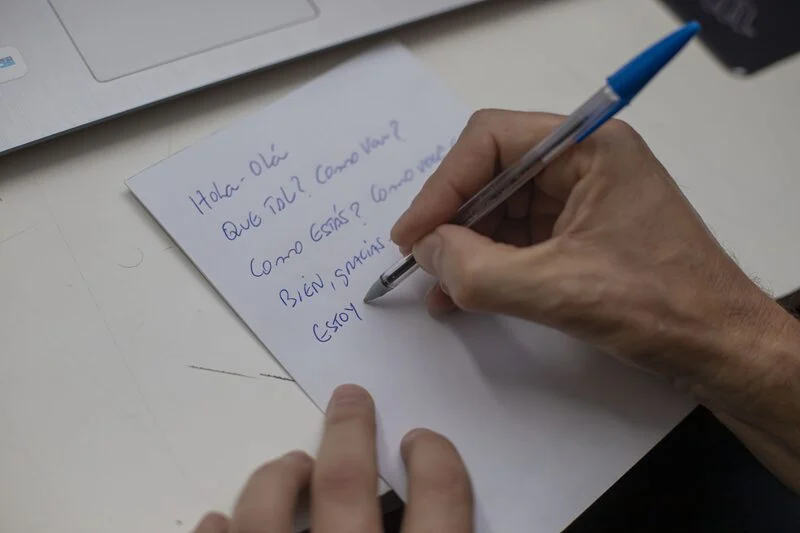 Hola - Olá
QUE TAL? Como vai?
Como ESTÁS? Como você
BIEN, gracias.
ESTOY